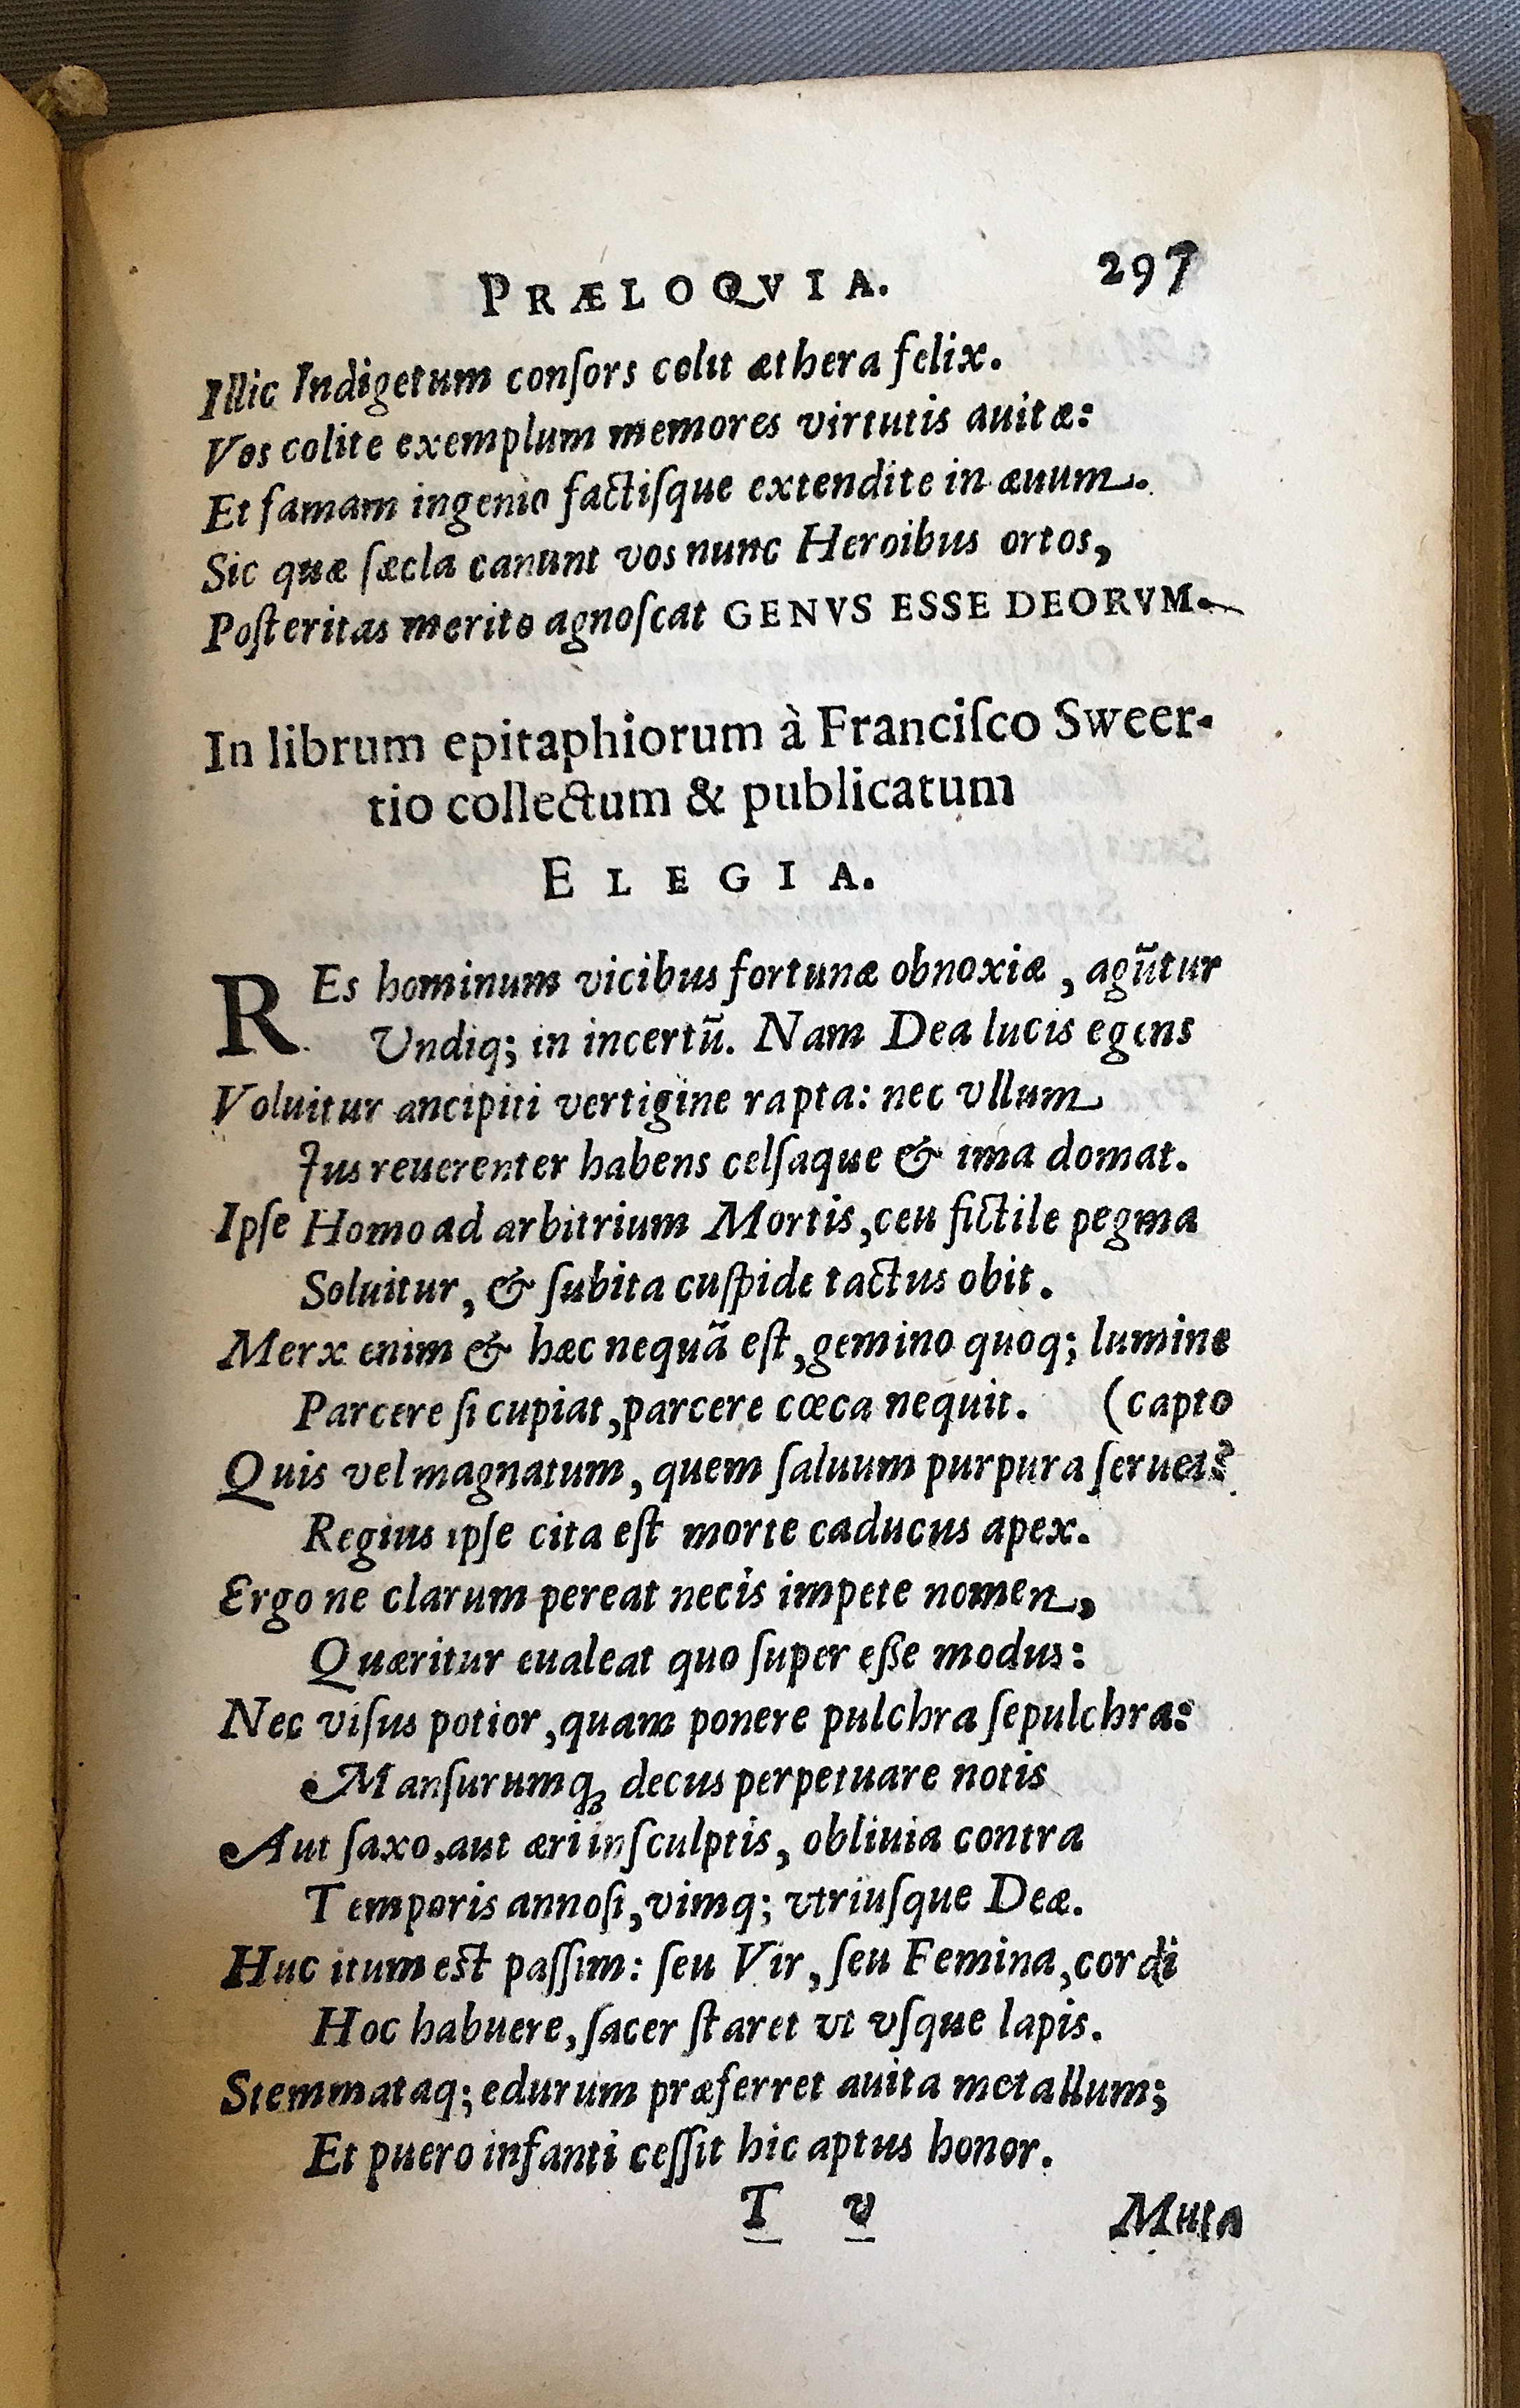 PRÆLOQVIA. 297
Illic Indigetum conſors colit æthera felix.
Vos colite exemplum memores virtutis auitæ:
Et famam ingenio factiſque extendite in æuum.
Sic quæ ſæcla canunt vos nunc Heroibus ortos,
Poſteritas merito agnoſcat GENVS ESSE DEORVM.
In librum epitaphiorum à Franciſco Sweer-
tio collectum & publicatum
ELEGIA.
REs hominum vicibus fortunæ obnoxiæ, agũtur
Undiq; in incertũ. Nam Dea lucis egens
Voluitur ancipiti vertigine rapta: nec vllum
Jus reuerenter habens celſaque & ima domat.
Ipſe Homo ad arbitrium Mortis, ceu fictile pegma
Soluitur, & ſubita cuſpide tactus obit.
Merx enim & hæc nequã eſt, gemino quoq; lumine
Parcere ſi cupiat, parcere cœca nequit. (capto
Quis vel magnatum, quem ſaluum purpura ſeruet?
Regius ipſe cita eſt morte caducus apex.
Ergo ne clarum pereat necis impete nomen,
Quæritur eualeat quo ſuper eſſe modus:
Nec viſus potior, quam ponere pulchra ſepulchra:
Manſurumq; decus perpetuare notis
Aut ſaxo, aut æri inſculptis, obliuia contra
Temporis annoſi, vimq; vtriuſque Deæ.
Huc itum eſt paſſim: ſeu Vir, ſeu Femina, cordi
Hoc habuere, ſacer ſtaret vt vſque lapis.
Stemmataq; edurum præferret auita metallum;
Et puero infanti ceſſit hic aptus honor.
T v Muta